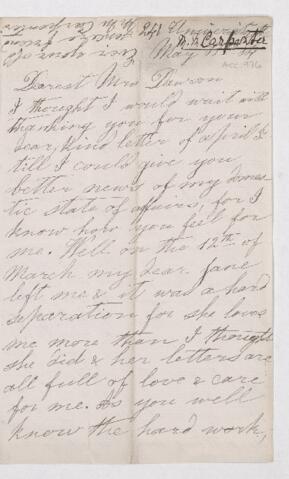 241 University
May
M. M. Carpenter
ACC. 976
Dearest Mrs Dawson
I thought I would wait with
thanking you for your
dear, kind letter of April 2
till I could give you
better news of my domes
tic state of affairs, for I
know how you feel for
me. Well on the 12th of
March my dear Jane
left me & it was a hard
separation for she loves
me more than I thought
she did & her letters are
all full of love & care
for me. As you well
know the hard work,